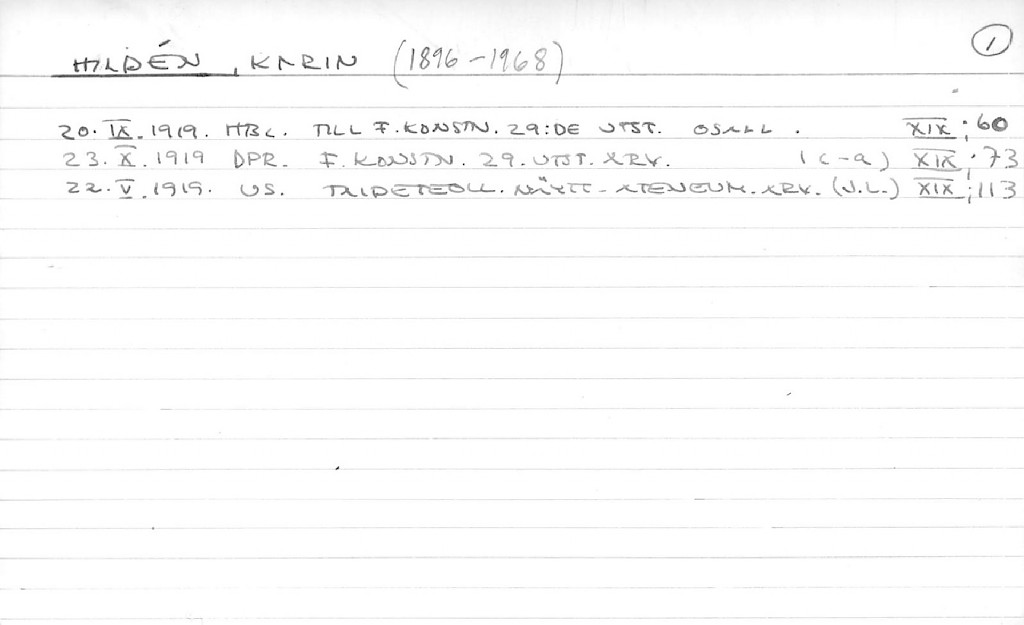 1
HILDÉN, KARIN (1896-1968)
20. IX. 1919. HBL. TILL F. KONSTN. 29:DE UTST. OSALL. XIX; 60
23. X. 1919 DPR. F. KONSTN. 29. UTST. ARV. (c-a) XIX; 73
22. V. 1919. US. TAIDETEOLL. NÄYTT - ATENEUM. ARV. (J.L.) XIX; 113